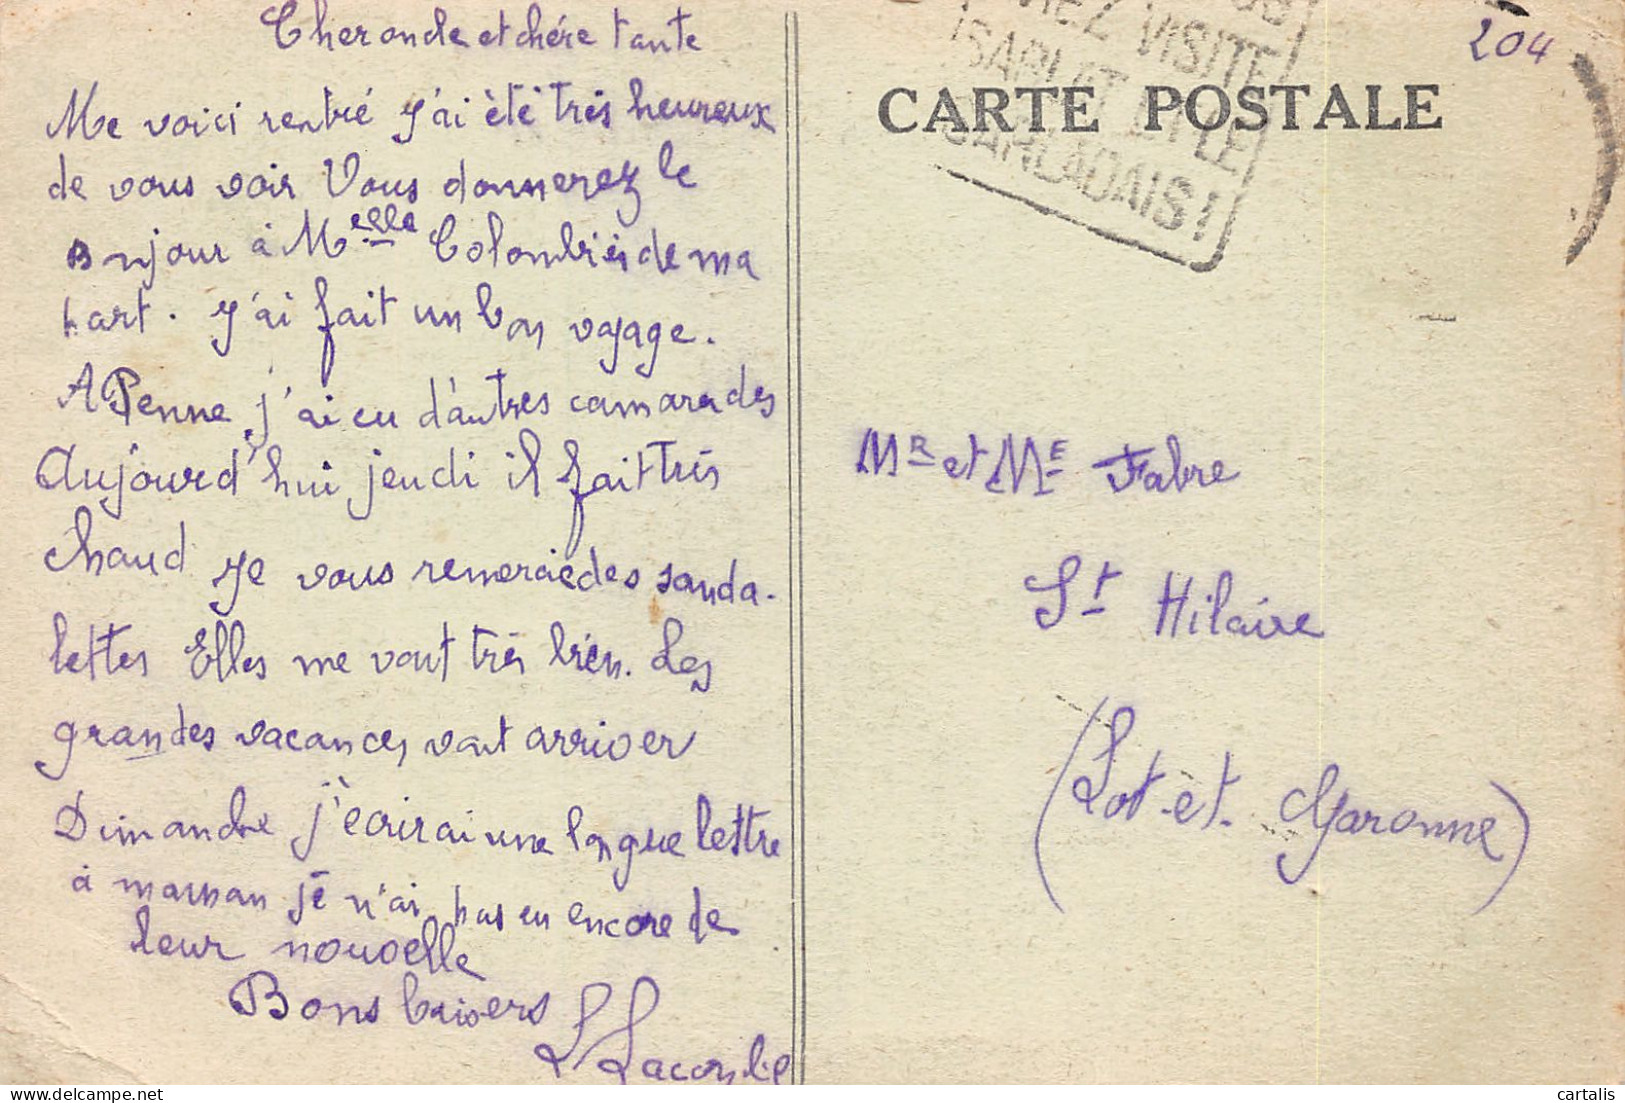 Cher oncle et chére tante
Me voici rentré j'ai èté très heureux
de vous voir Vous donnerez le
Bonjour à Melle Colombiés de ma
part. j'ai fait un bon voyage.
A Penne j'ai eu d'autres camarades
Aujourd'hui jeudi il fait très
chaud je vous remercie des sanda-
lettes Elles me vont très bien. Les
grandes vacances vont arriver
Dimanche j'écrirai une longue lettre
à maman je n'ai pas eu encore de
leur nouvelle
Bons baisers
L Lacombe
204
VISITE
SARLAT ET LE
SARLADAIS!
CARTE POSTALE
MR et ME Fabre
St Hilaire
(Lot-et-Garonne)
cartalis